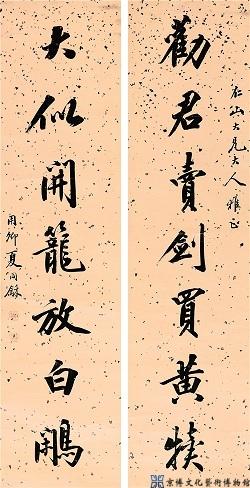 红山大兄大人雅正
勸君賣劍買黃犢
大似開籠放白鷴
用卿夏同龢
京博文化藝術博物館